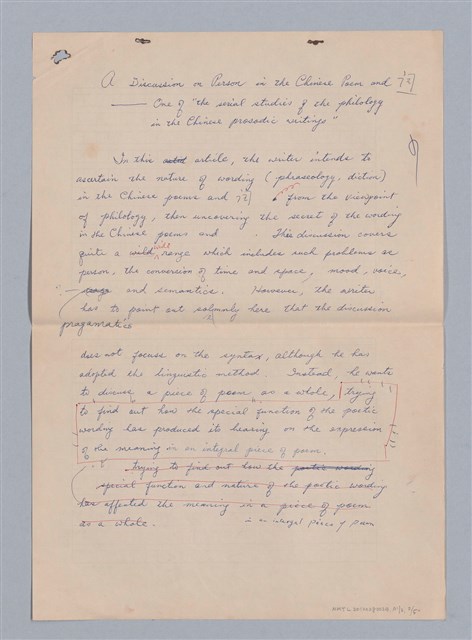 A Discussion on Person in the Chinese Poem and 詞
— One of "the serial studies of the philology
in the Chinese prosodic writings"
In this article, the writer intends to
ascertain the nature of wording (phraseology, diction)
in the Chinese poems and 詞 from the viewpoint
of philology, then uncovering the secret of the wording
in the Chinese poems and . This discussion covers
quite a wild range which includes such problems as
person, the conversion of time and space, mood, voice,
and semantics. However, the writer
has to point out solmnly here that the discussion
pragamratics
does not focuse on the syntax, although he has
adopted the linguistic method. Instead, he wants
to discuss a piece of poem as a whole, trying
to find out how the special function of the poetic
wording has produced its bearing on the expression
of the meaning in an integral piece of poem.
trying to find out how the poetic wording
special function and nature of the poetic wording
has affected the meaning in a piece of poem
as a whole. in an integral piece of poem